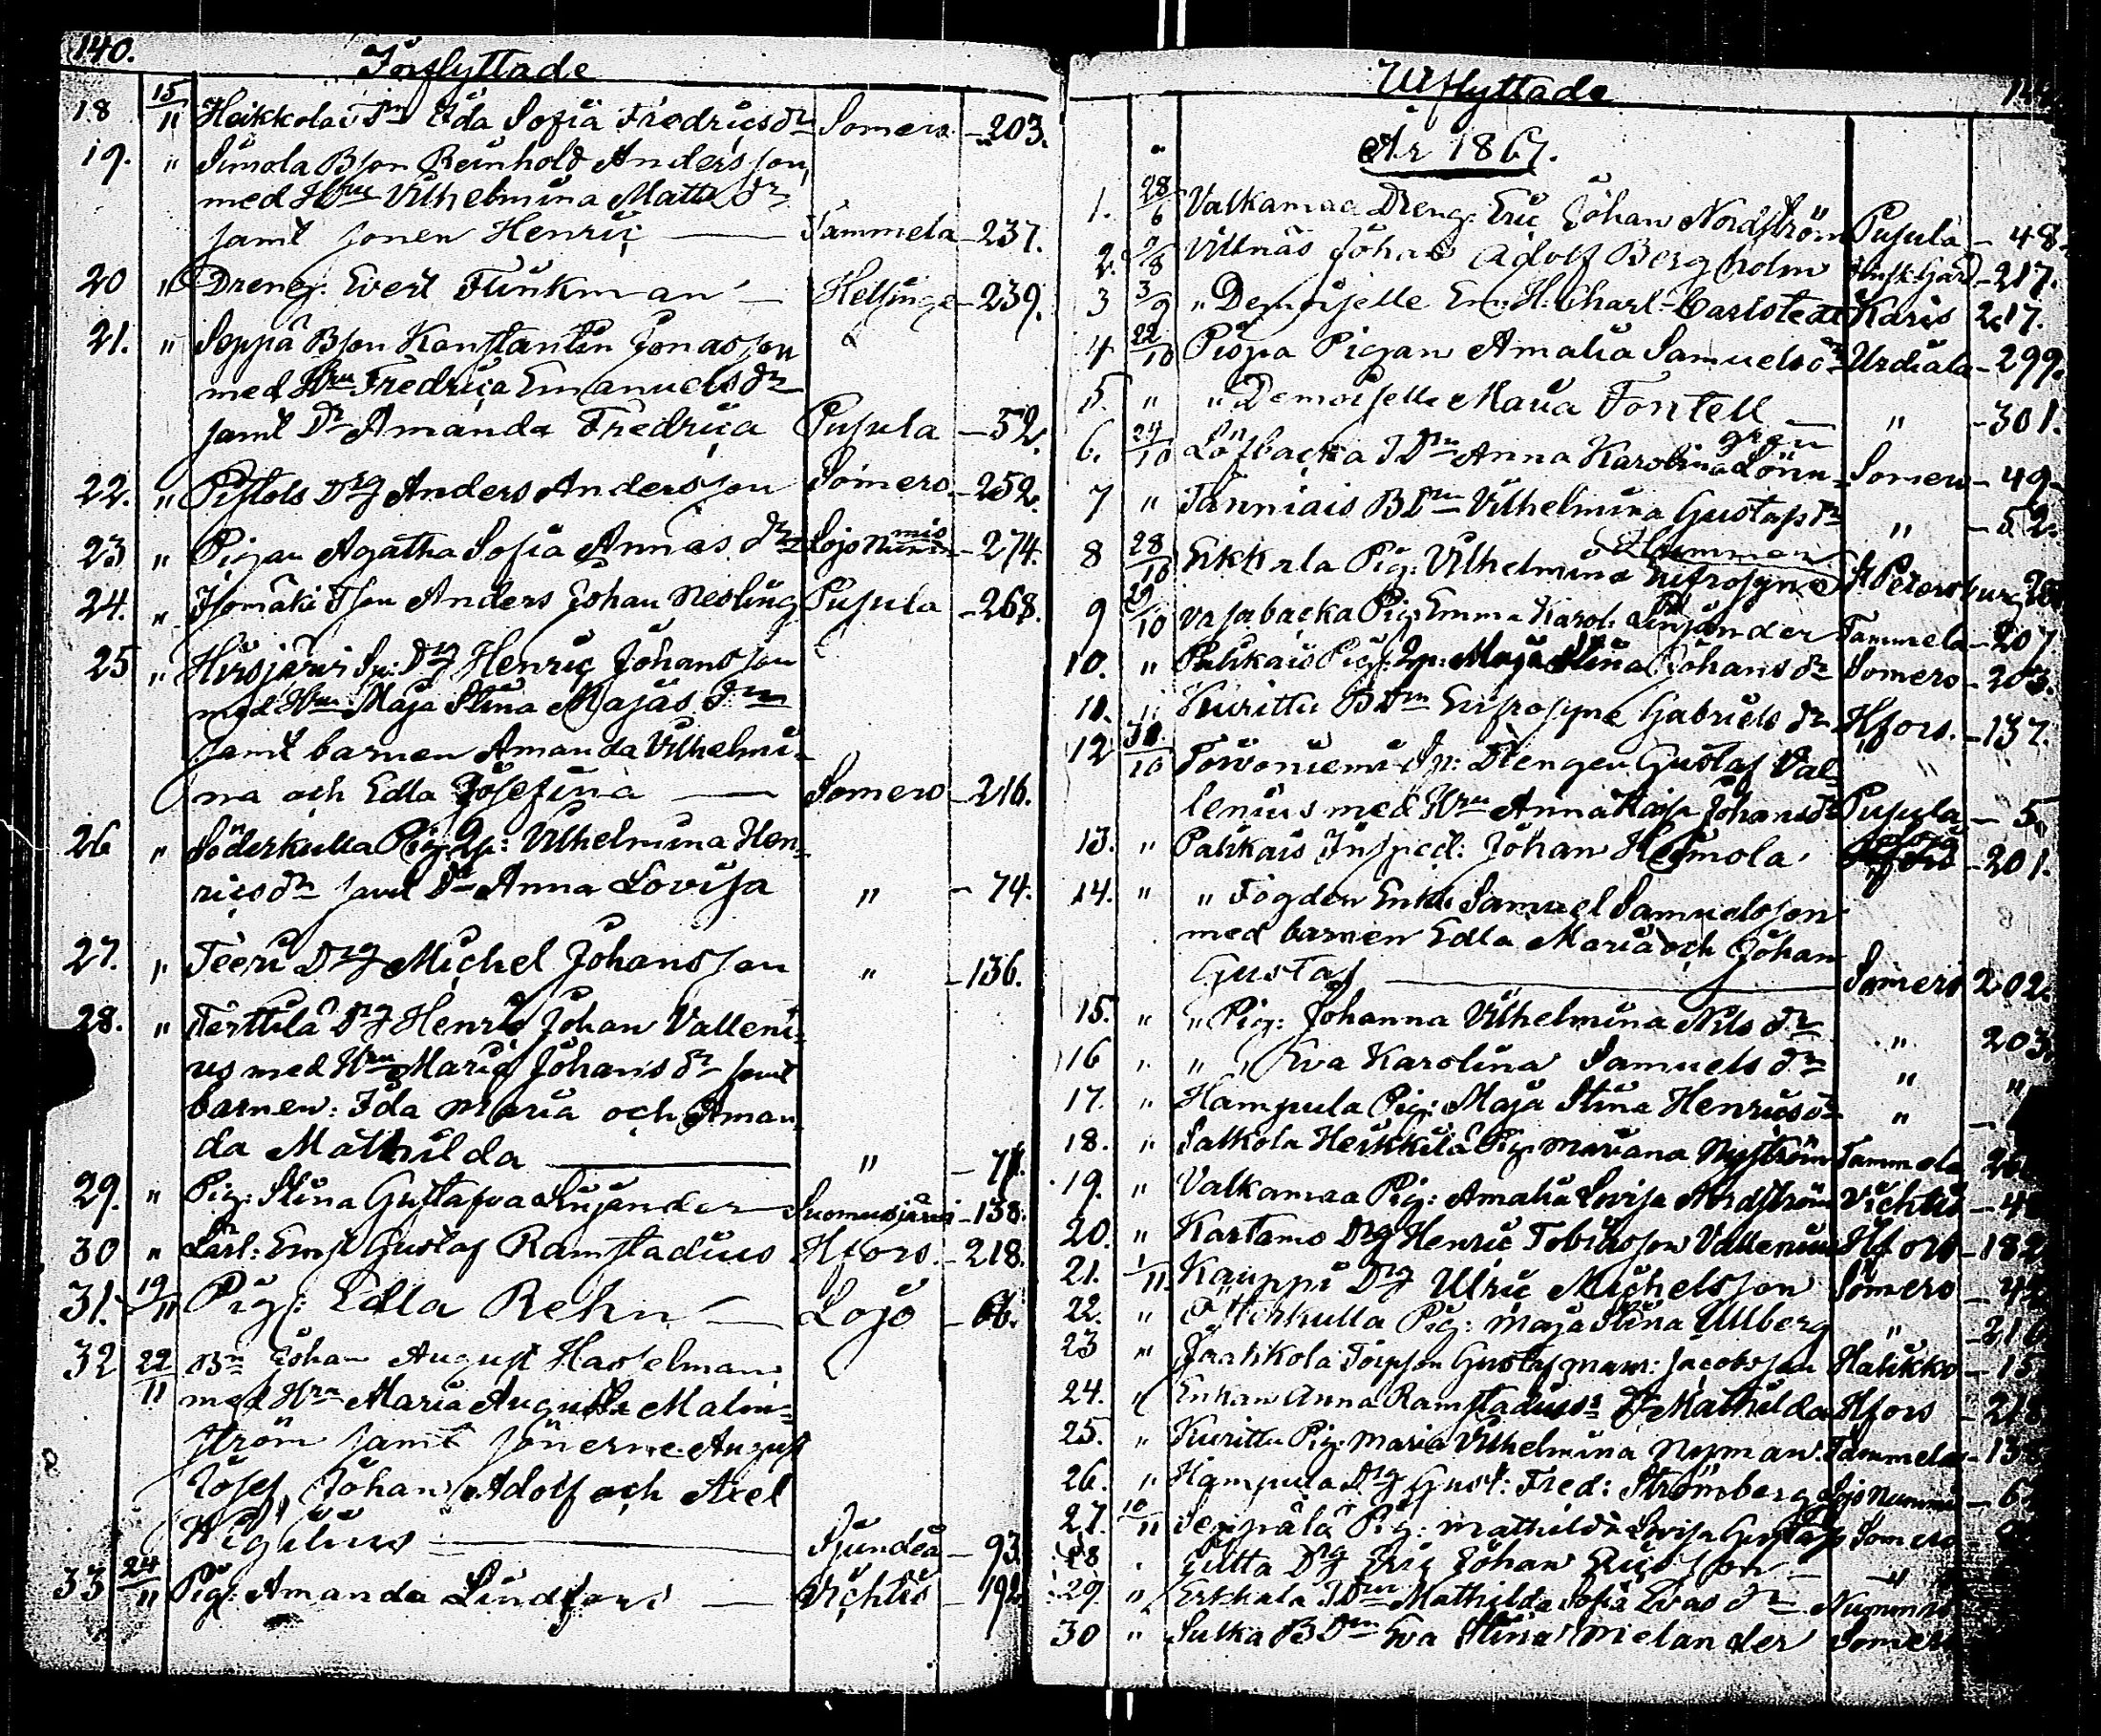 140.
Inflyttade
18 15/11 Heikkola T Dr Ida Sofia Fredricsdr Somero - 203.
19. " Simola Bson Reinhold Andersson
med Hru Vilhelmina Matts dr
samt sonen Henric — Tammela - 237.
20 " Dreng. Evert Flinkman — Helsinge - 239.
21. " Seppä Bson Konstantin Jonasson
med Hru Fredrica Emanuels dr
samt Dr Amanda Fredrica Pusula - 52.
22. " Pistols Drg Anders Andersson Somero - 252.
23 " Pigan Agatha Sofia Annas dr Lojo Nummis - 274.
24. " Isomäki Tson Anders Johan Nesling Pusula - 268.
25 " Hirsjärvi Sp: Drg Henric Johansson
med Hru Maja Stina Majas dr
samt barnen Amanda Vilhelmi-
na och Edla Josefina — Somero - 216.
26 " Söderkulla Pig. Qp: Vilhelmina Hen-
rics dr samt Dr Anna Lovisa " - 74.
27. " Teeri Drg Michel Johansson " - 136.
28. " Terttilä Drg Henric Johan Valleni-
us med Hru Maria Johans dr samt
barnen: Ida Maria och Aman-
da Mathilda — "
29. " Pig: Stina Gustafva Linjander Suomusjärvi - 138.
30 " Lärl: Ernst Gustaf Ramstadius Hfors. - 218.
31. 19/11 Pig: Edla Rehn — Lojo - 66.
32 22/11 Bn Johan August Hasselman
med Hru Maria Augusta Malm-
ström samt sönerne August
Josef, Johan Adolf och Axel
Vigilius — Sjundeå - 93.
33 24/11 Pig: Amanda Lindfors — Vichtis - 192.
Utflyttade
År 1867.
1. 28/6 Valkamaa Dreng. Eric Johan Nordström Pusula - 48.
2. Viksnäs Johan Adolf Bergholm - 217.
3 3/9 " Demoiselle Em. H. Charl. Carlstedt Karis 217.
4 22/10 Pispa Pigan Amalia Samuels dr Urdiala - 299.
5. " " Demoiselle Maria Fontell — " - 301.
6. 24/10 Löfbacka T Dr Anna Karolina Lönn-
gren Somero - 49.
7 " Tanniais B Dr Vilhelmina Gustafs dr " - 52.
8 28/10 Erkkala Pig: Vilhelmina Eufrosyne St Petersburg
9 29/10 Vasabacka Pig: Emma Karol. Linjander Tammela - 207
10. " Palikais Pig: Qp: Maja Stina Johans dr Somero - 203.
11. " Kurittu B Dr Eufrosyne Gabriels dr Hfors. - 137.
12 30/10 Torvoniemi Sp: Drengen Gustaf Val-
lenius med Hru Anna Kaisa Johans dr Pusula - 5.
13. " Palikais Inspect: Johan Heimola - 201.
14. " " Fogden Enkl: Samuel Samuelsson
med barnen Edla Maria och Johan
Gustaf — Somero 202.
15. " " Pig: Johanna Vilhelmina Nils dr " 203.
16 " " " Eva Karolina Samuels dr " "
17. " Hampula Pig: Maja Stina Henrics dr "
18. " Salkola Heikkilä Pig. Mariana Nyström Tammela
19. " Valkamaa Pig: Amalia Lovisa Nordström Vichtis
20. " Kartamo Drg Henric Tobiasson Vallenius Hfors - 182
21. 1/11 Kauppi Drg Ulric Michelsson Somero
22. " Österkulla Pig: Maja Stina Ullberg " - 216
23 " Jaatikola Torpson Gustaf Jacobsson Halikko
24. " Enkan Anna Ramstadius's Dr Mathilda Hfors - 218
25. " Kurittu Pig: Maria Vilhelmina Nyman Tammela
26. " Hampula Drg Gust: Fred: Strömberg Lojo Nummis
27. 10/11 Seppälä Pig: Mathilda Lovisa Gustafs Somero
28 Drg Eric Johan Ericsson — "
29. " Erkkala T Dr Mathilda Sofia Evas dr Nummis
30 " Sulka B Dr Eva Stina Melander Somero